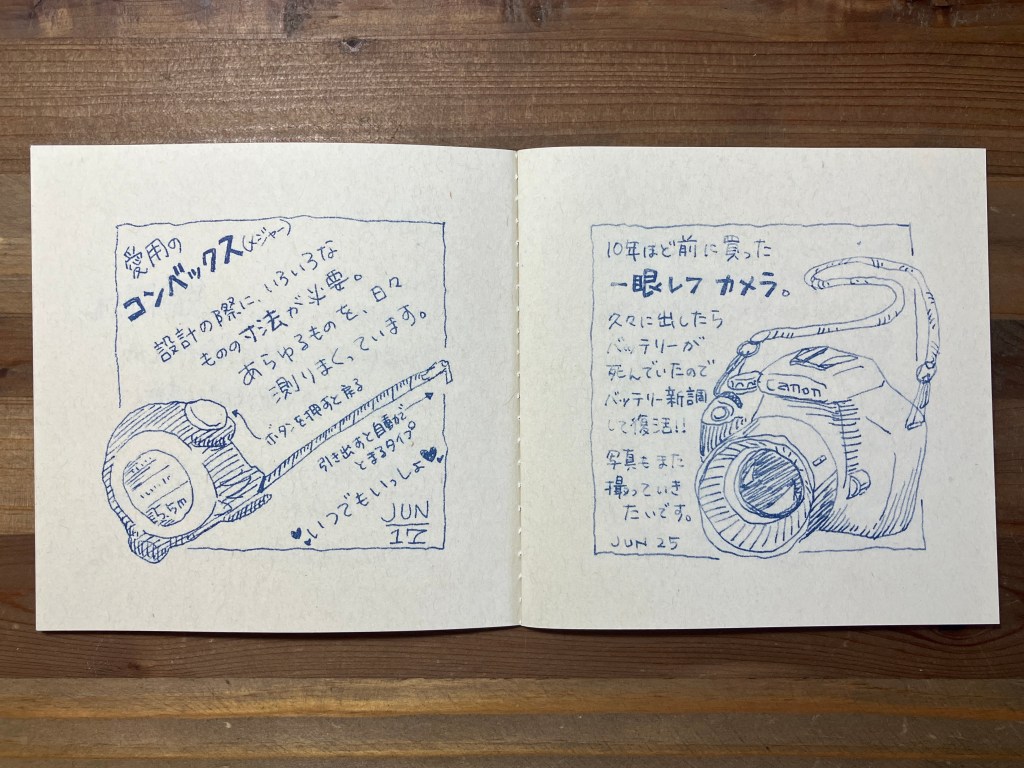 愛用の
コンベックス(メジャー)
設計の際に、いろいろな
ものの寸法が必要。
あらゆるものを、日々
測りまくっています。
ボタンを押すと戻る
引き出すと自動で
とまるタイプ
いつでもいっしょ
5.5m
JUN
17
10年ほど前に買った
一眼レフカメラ。
久々に出したら
バッテリーが
死んでいたので
バッテリー新調
して復活!!
写真もまた
撮っていき
たいです。
JUN 25
Canon